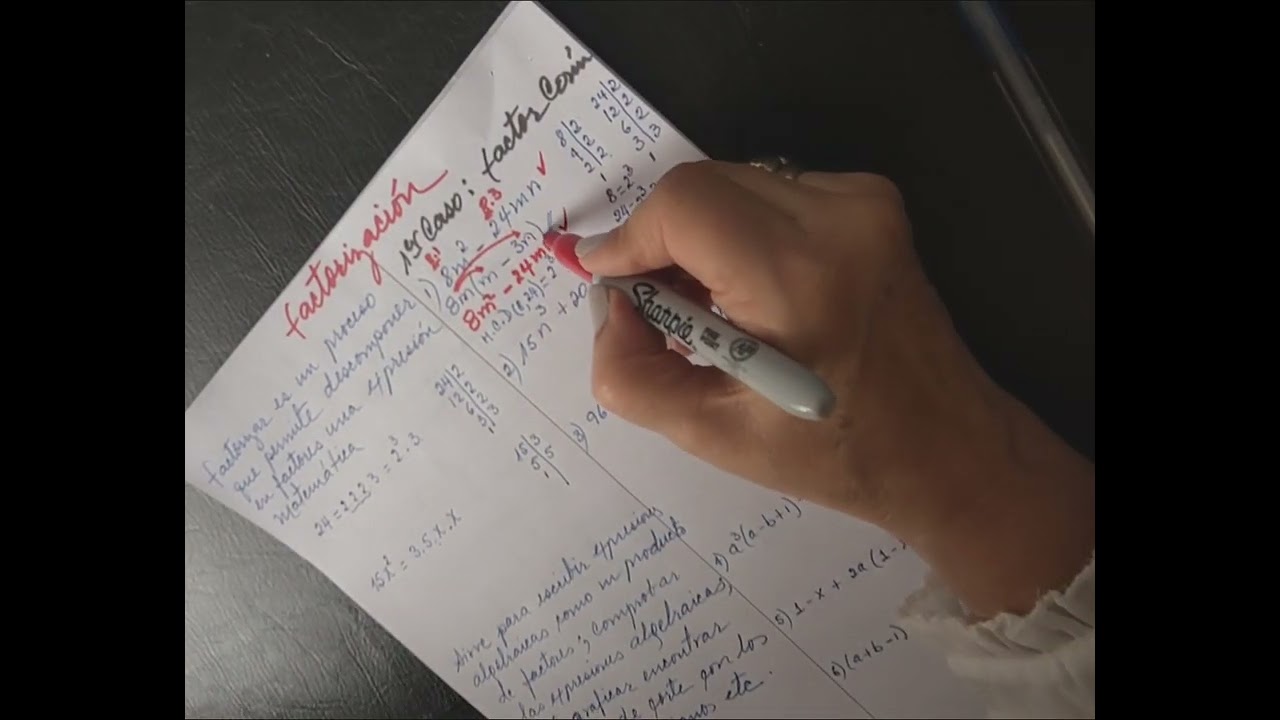 factorización
1er Caso: factor Común
factorizar es un proceso
que permite descomponer
en factores una expresión
matemática
24 = 2.2.2.3 = 2³.3
15x² = 3.5.x.x
24|2
12|2
6|2
3|3
1
15|3
5|5
1
sirve para escribir expresiones
algebraicas como un producto
de factores; comprobar
las expresiones algebraicas,
graficar encontrar
de corte con los
etc.
8.1 8.3
1) 8m² - 24mn ✓
8m(m - 3n)
8m² - 24m ✓
M.C.D(8,24)=2³
8|2
4|2
2|2
1
24|2
12|2
6|2
3|3
1
8=2³
24=2³
2) 15n³ + 20
3) 96
4) a³(a-b+1)
5) 1-x + 2a(1-
6) (a+b-1)
Sharpie